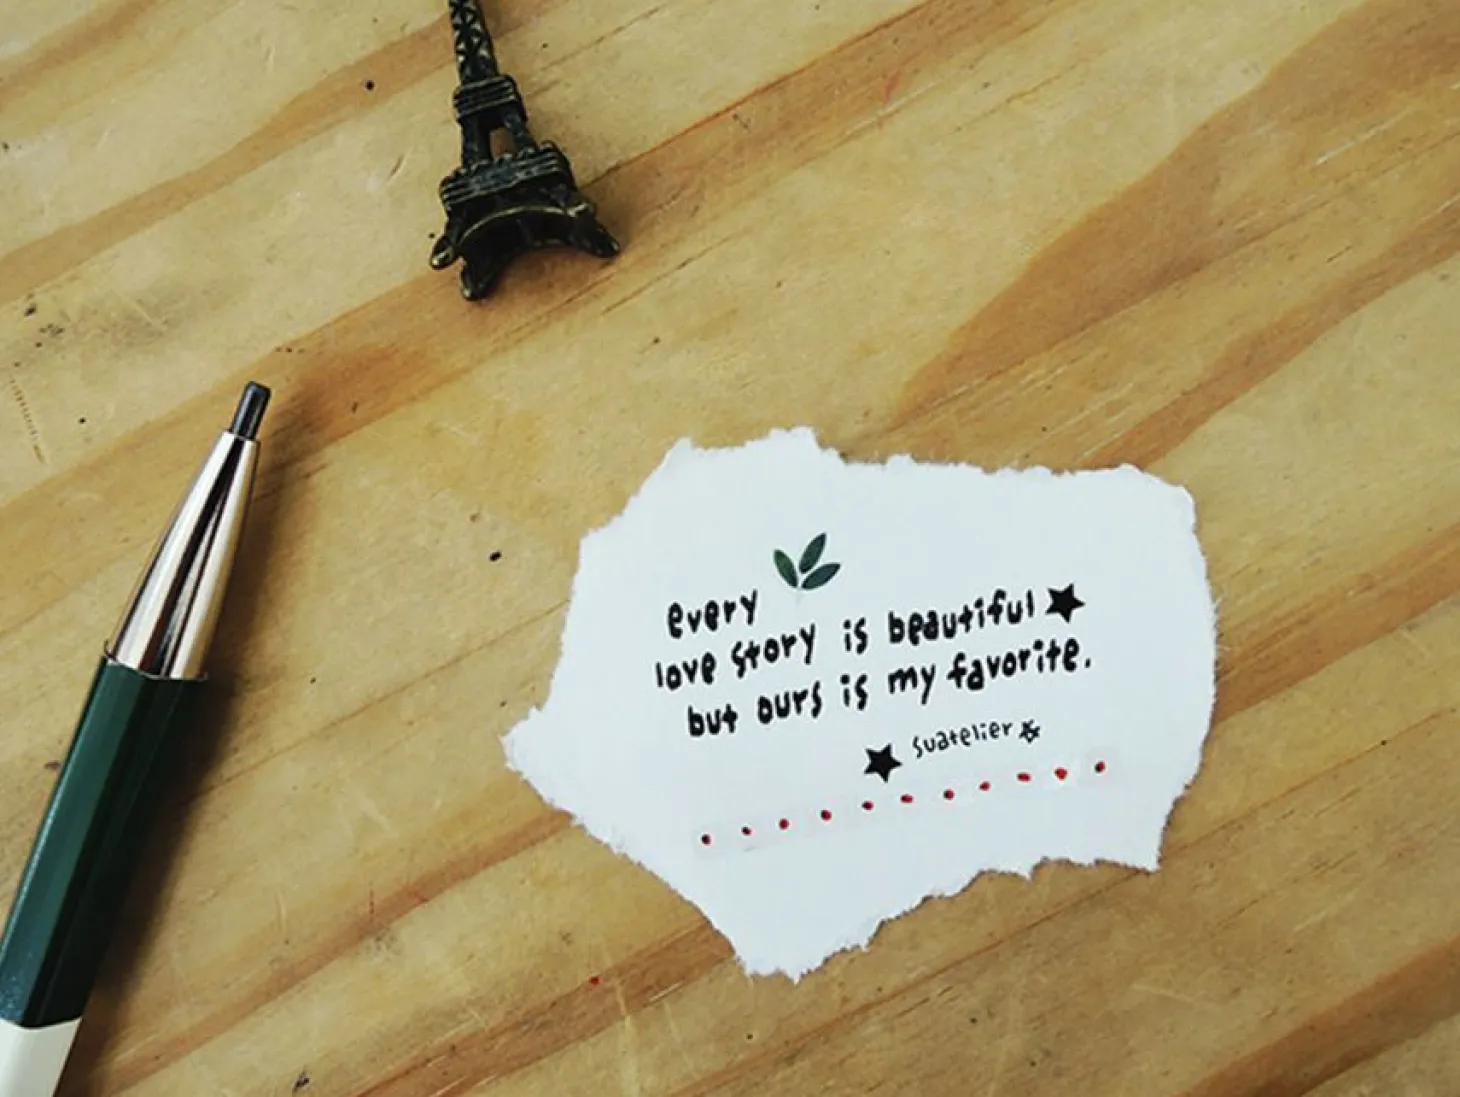 every
love story is beautiful
but ours is my favorite.
suatelier